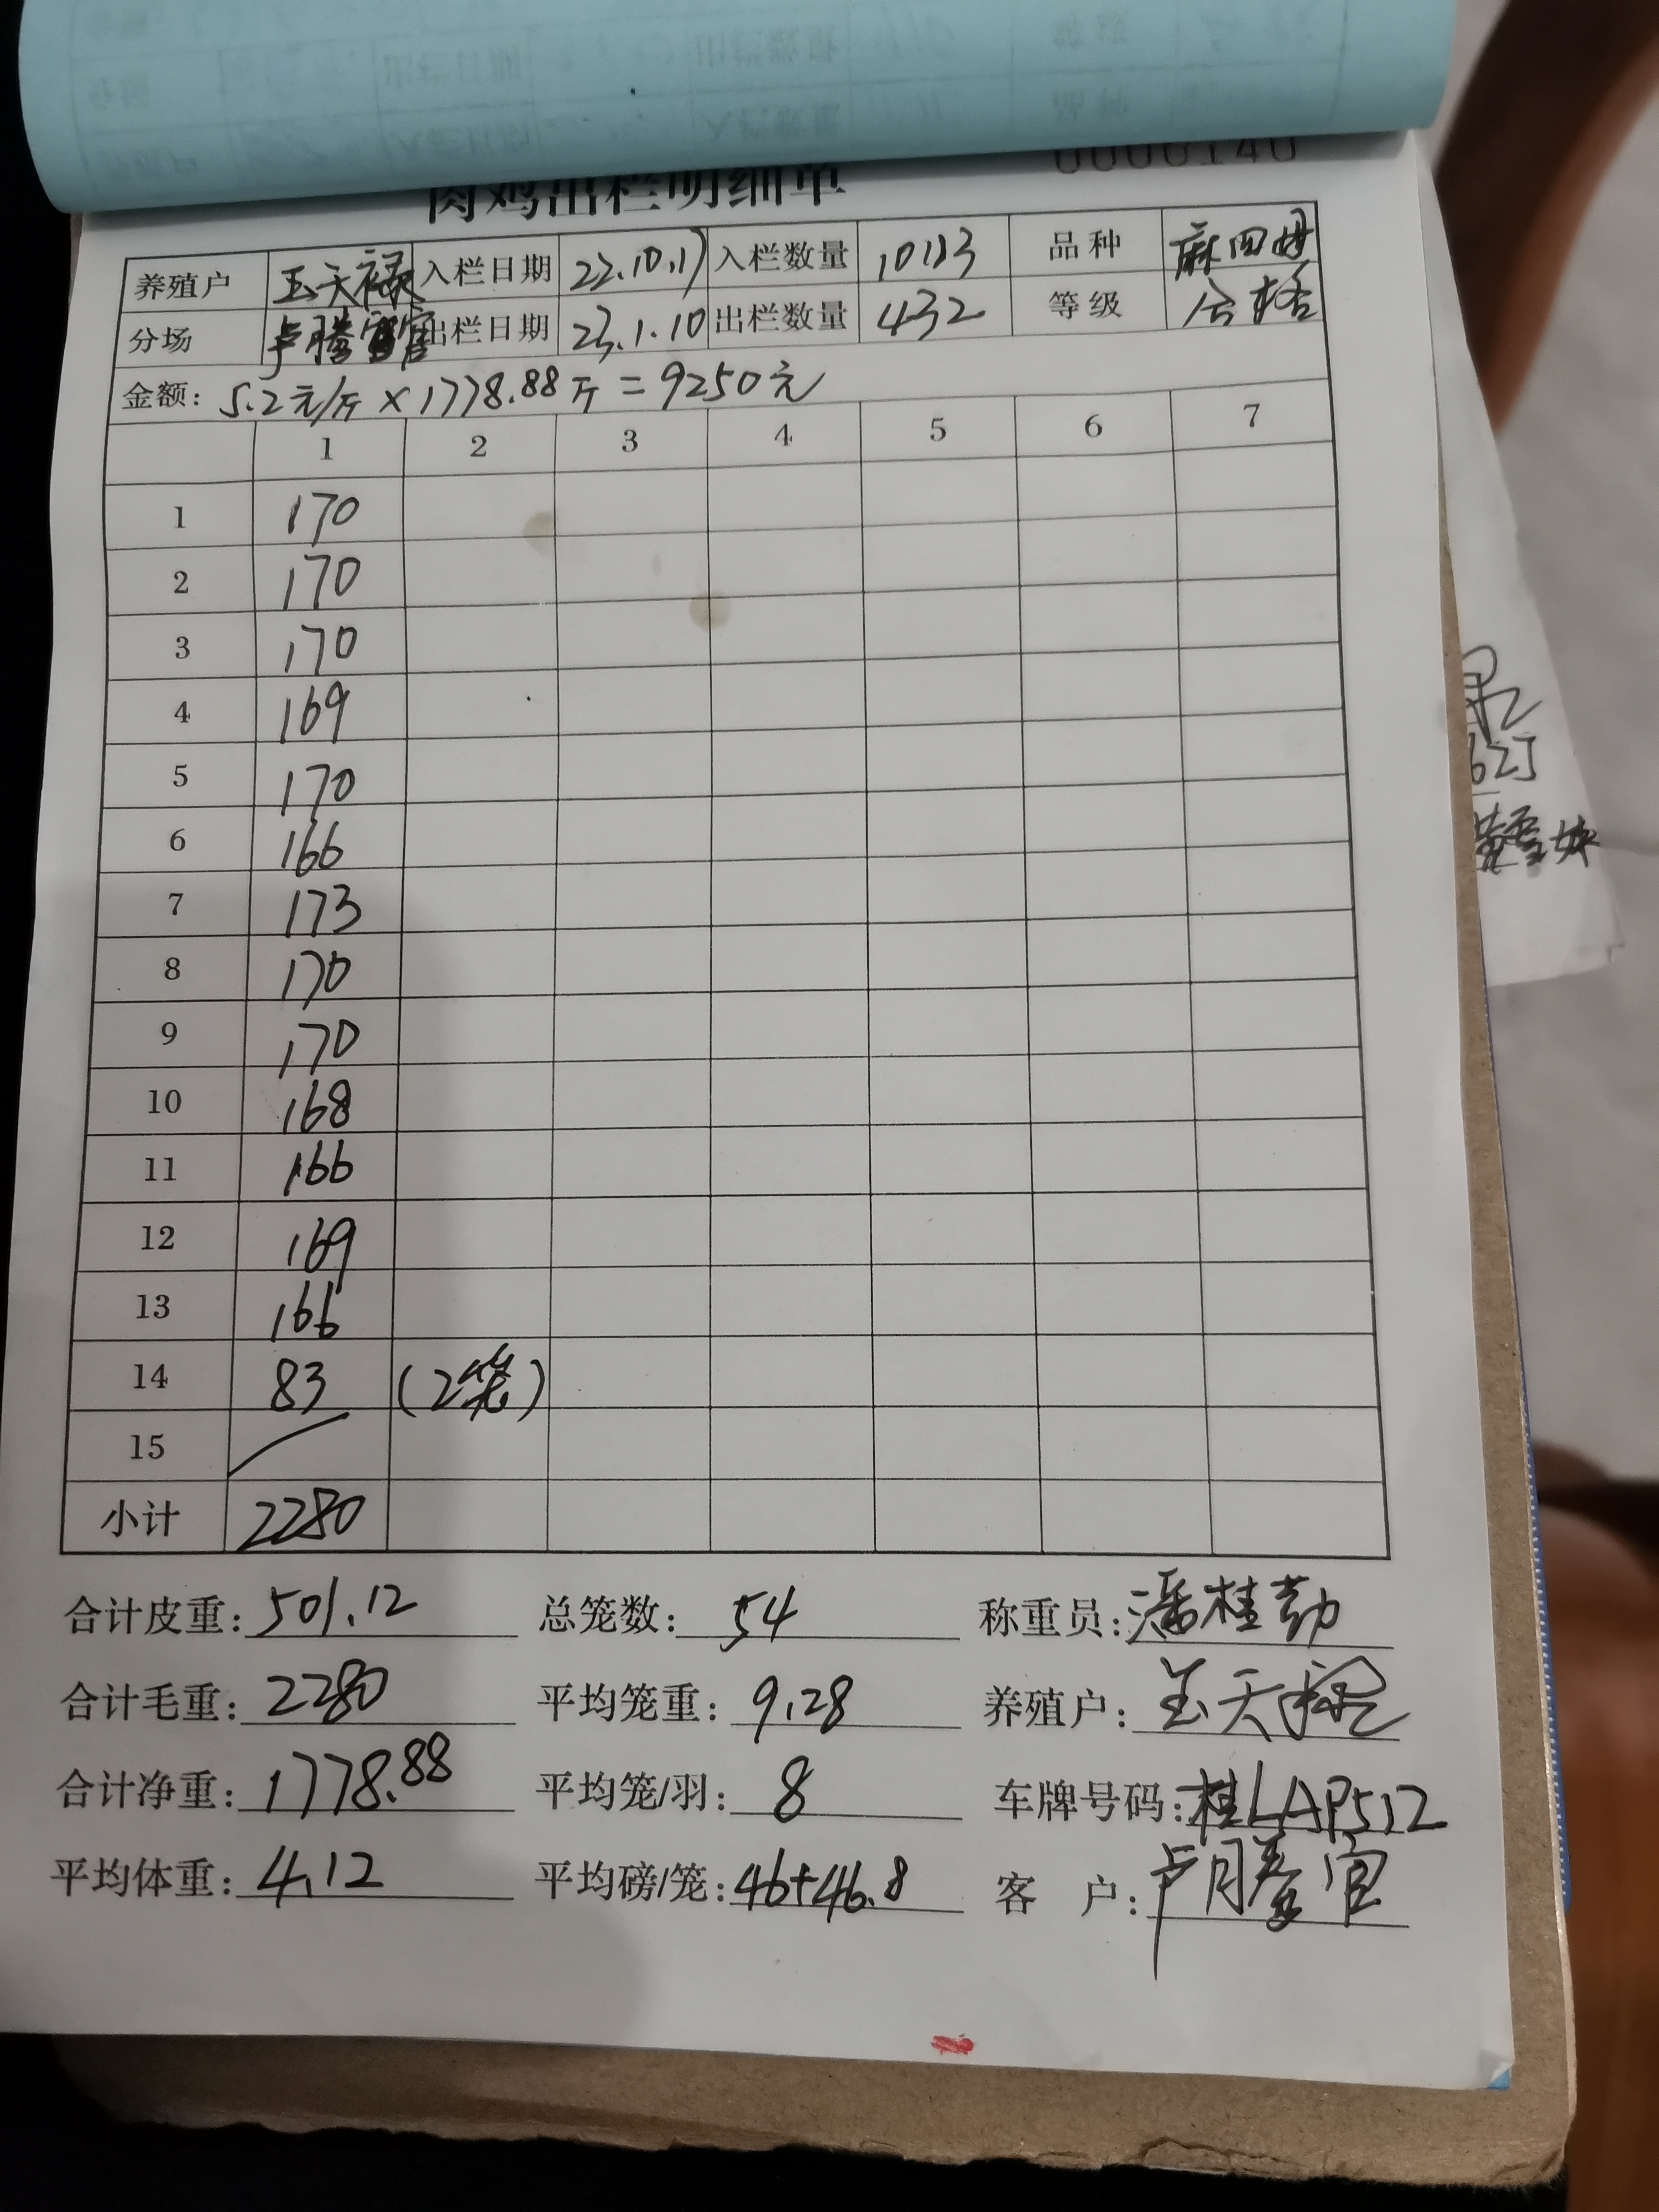 0000140
肉鸡出栏明细单
养殖户 玉天禄 入栏日期 22.10.17 入栏数量 10113 品种 麻四母
分场 卢腾 出栏日期 23.1.10 出栏数量 432 等级 合格
金额: 5.2元/斤 × 1778.88斤 = 9250元
1 2 3 4 5 6 7
1 170
2 170
3 170
4 169
5 170
6 166
7 173
8 170
9 170
10 168
11 166
12 169
13 166
14 83 (2笼)
15
小计 2280
合计皮重: 501.12 总笼数: 54 称重员: 潘桂勤
合计毛重: 2280 平均笼重: 9.28 养殖户: 玉天禄
合计净重: 1778.88 平均笼/羽: 8 车牌号码: 桂LAP512
平均体重: 4.12 平均磅/笼: 46+46.8 客户: 卢腾宣